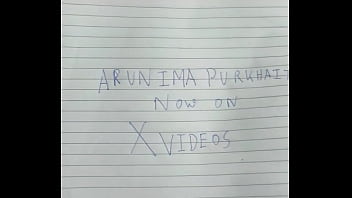 ARUNIMA PURKHAIT
NOW ON
X VIDEOS